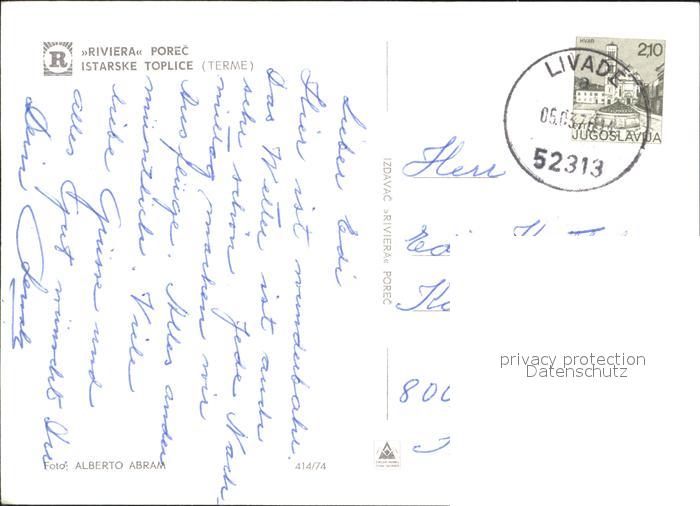 »RIVIERA« POREČ
ISTARSKE TOPLICE (TERME)
Lieber Edi
Hier ist wunderbar.
Das Wetter ist auch
sehr schön. Jede Nach-
mittag machen wir
Ausflüge. Alles andere
mündlich. Viele
liebe Grüsse und
alles Gut wünscht Dir
Dein
Foto: ALBERTO ABRAM
414/74
IZDAVAČ »RIVIERA« POREČ
HVAR
2,10
JUGOSLAVIJA
LIVADE
a
52313
Herr
800
privacy protection
Datenschutz